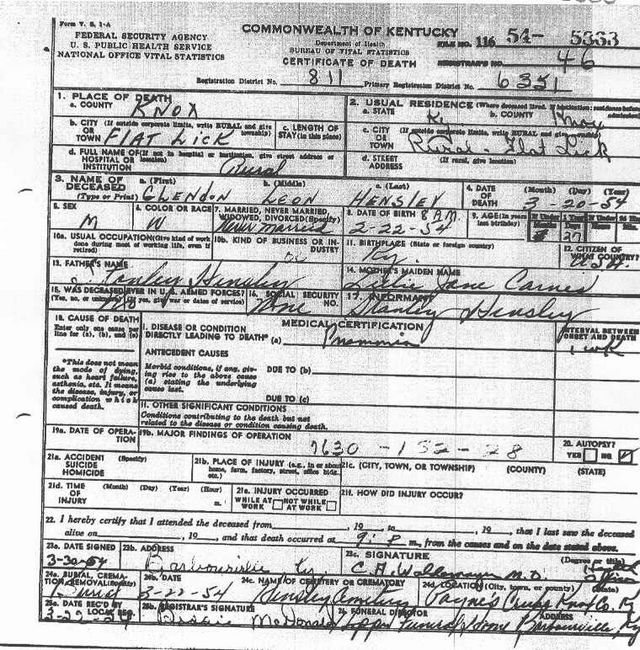 Form V. S. 1-A
FEDERAL SECURITY AGENCY
U. S. PUBLIC HEALTH SERVICE
NATIONAL OFFICE VITAL STATISTICS
COMMONWEALTH OF KENTUCKY
Department of Health
BUREAU OF VITAL STATISTICS
CERTIFICATE OF DEATH
FILE NO. 116 54- 5333
REGISTRAR'S NO. 46
Registration District No. 811 Primary Registration District No. 6351
1. PLACE OF DEATH
a. COUNTY KNOX
2. USUAL RESIDENCE (Where deceased lived. If institution: residence before
a. STATE Ky b. COUNTY Knox
b. CITY (If outside corporate limits, write RURAL and give township)
OR TOWN FLAT LICK
c. LENGTH OF STAY (in this place)
c. CITY (If outside corporate limits, write RURAL and give township)
OR TOWN Rural - Flat Lick
d. FULL NAME OF (If not in hospital or institution, give street address or location)
HOSPITAL OR INSTITUTION Rural
d. STREET ADDRESS (If rural, give location)
3. NAME OF DECEASED (Type or Print)
a. (First) b. (Middle) c. (Last)
GLENDON LEON HENSLEY
4. DATE OF DEATH (Month) (Day) (Year)
3-20-54
5. SEX M
6. COLOR OR RACE W
7. MARRIED, NEVER MARRIED, WIDOWED, DIVORCED (Specify)
Never married
8. DATE OF BIRTH 8 A.M.
2-22-54
9. AGE (In years last birthday)
27
10a. USUAL OCCUPATION (Give kind of work done during most of working life, even if retired)
10b. KIND OF BUSINESS OR INDUSTRY
11. BIRTHPLACE (State or foreign country)
Ky.
12. CITIZEN OF WHAT COUNTRY?
13. FATHER'S NAME
Hensley
14. MOTHER'S MAIDEN NAME
Jane Carnes
15. WAS DECEASED EVER IN U. S. ARMED FORCES?
(Yes, no, or unknown) (If yes, give war or dates of service)
16. SOCIAL SECURITY NO.
None
17. INFORMANT
Stanley Hensley
18. CAUSE OF DEATH
Enter only one cause per line for (a), (b), and (c)
MEDICAL CERTIFICATION
I. DISEASE OR CONDITION
DIRECTLY LEADING TO DEATH* (a)
INTERVAL BETWEEN ONSET AND DEATH
1 wk
*This does not mean the mode of dying, such as heart failure, asthenia, etc. It means the disease, injury, or complication which caused death.
ANTECEDENT CAUSES
Morbid conditions, if any, giving rise to the above cause (a) stating the underlying cause last.
DUE TO (b)
DUE TO (c)
II. OTHER SIGNIFICANT CONDITIONS
Conditions contributing to the death but not related to the disease or condition causing death.
19a. DATE OF OPERATION
19b. MAJOR FINDINGS OF OPERATION
7630 - 132 - 28
20. AUTOPSY?
YES NO
21a. ACCIDENT (Specify)
SUICIDE
HOMICIDE
21b. PLACE OF INJURY (e.g., in or about home, farm, factory, street, office bldg., etc.)
21c. (CITY, TOWN, OR TOWNSHIP) (COUNTY) (STATE)
21d. TIME OF INJURY (Month) (Day) (Year) (Hour) m.
21e. INJURY OCCURRED
WHILE AT WORK NOT WHILE AT WORK
21f. HOW DID INJURY OCCUR?
22. I hereby certify that I attended the deceased from , 19 to , 19 , that I last saw the deceased
alive on , 19 , and that death occurred at 9: P m., from the causes and on the date stated above.
23a. DATE SIGNED
3-30-54
23b. ADDRESS
Barbourville Ky
23c. SIGNATURE (Degree or title)
M.D.
24a. BURIAL, CREMATION, REMOVAL (Specify)
Burial
24b. DATE
3-22-54
24c. NAME OF CEMETERY OR CREMATORY
Hensley Cemetery
24d. LOCATION (City, town, or county) (State)
Payne's Creek Knox Co. Ky
25a. REC'D BY LOCAL REG.
25b. REGISTRAR'S SIGNATURE
McDonald
26. FUNERAL DIRECTOR ADDRESS
Funeral Home Barbourville, Ky